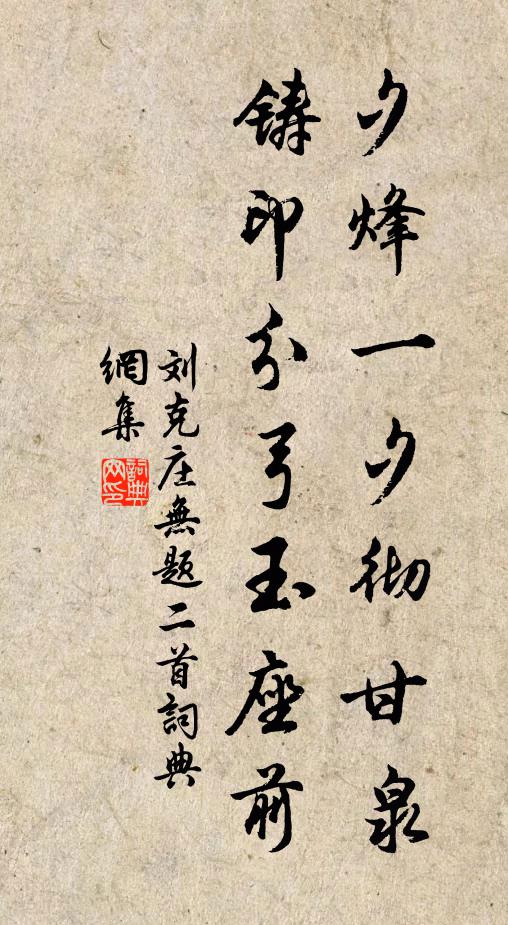 夕烽一夕彻甘泉
铸印分弓玉座前
刘克庄無题二首詞典
網集
詞典网印